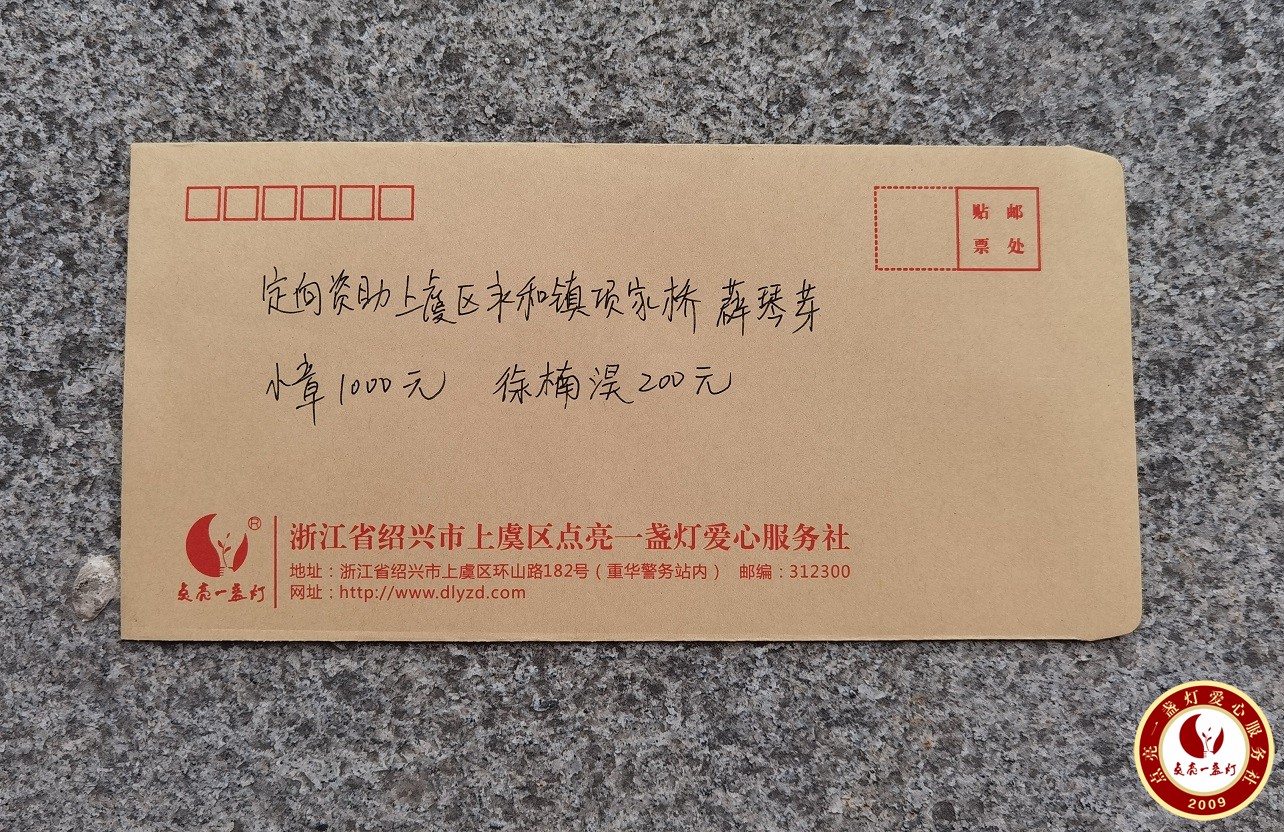 贴 邮
票 处
定向资助上虞区永和镇项家桥 薛琴芽
小章1000元 徐楠淏200元
®
点亮一盏灯
浙江省绍兴市上虞区点亮一盏灯爱心服务社
地址：浙江省绍兴市上虞区环山路182号（重华警务站内） 邮编：312300
网址：http://www.dlyzd.com
点亮一盏灯爱心服务社
点亮一盏灯
2009